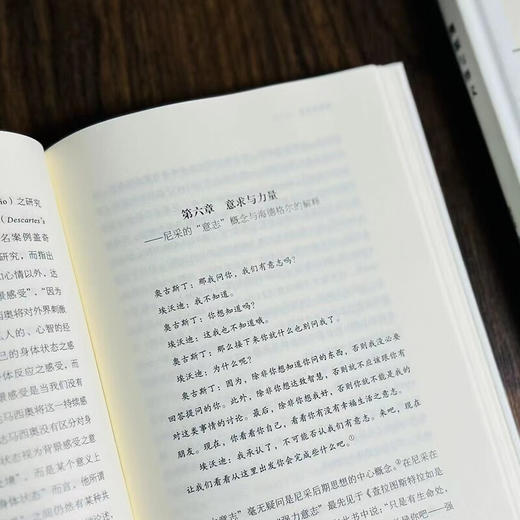 io）之研究
（Descartes's
名案例盖奇
研究，而指出
心情以外，达
景感受”，“因为
西奥将对外界刺激
人的、心智的经
己的身体状态之感
体反应之感受，
景感受是当我们没有
马西奥将这一持续
没有区分对身
状态视为背景感受之意
而是某个意义上
身体状态”而言，他所谓
之间仍然有某种共
第六章 意求与力量
——尼采的“意志”概念与海德格尔的解释
奥古斯丁：那我问你，我们有意志吗？
埃沃迪：我不知道。
奥古斯丁：你想知道吗？
埃沃迪：这我也不知道哦。
奥古斯丁：那么接下来你就什么也别问我了。
埃沃迪：为什么呢？
奥古斯丁：因为，除非你想知道你问的东西，否则我没必要
回答提问的你。此外，除非你想达致智慧，否则就不应该跟你有
对这类事情的讨论。最后，除非你想我好，否则你就不能是我的
朋友。现在，你看看你自己，看看你有没有幸福生活之意志。
埃沃迪：我承认了，不可能否认我们有意志。来吧，现在
让我们看看从这里出发你会完成些什么吧。①
意志”毫无疑问是尼采后期思想的中心概念。②在尼采在
强力意志”最先见于《查拉图斯特拉如是
此书中说：“只是有生命处，
是你吧——强